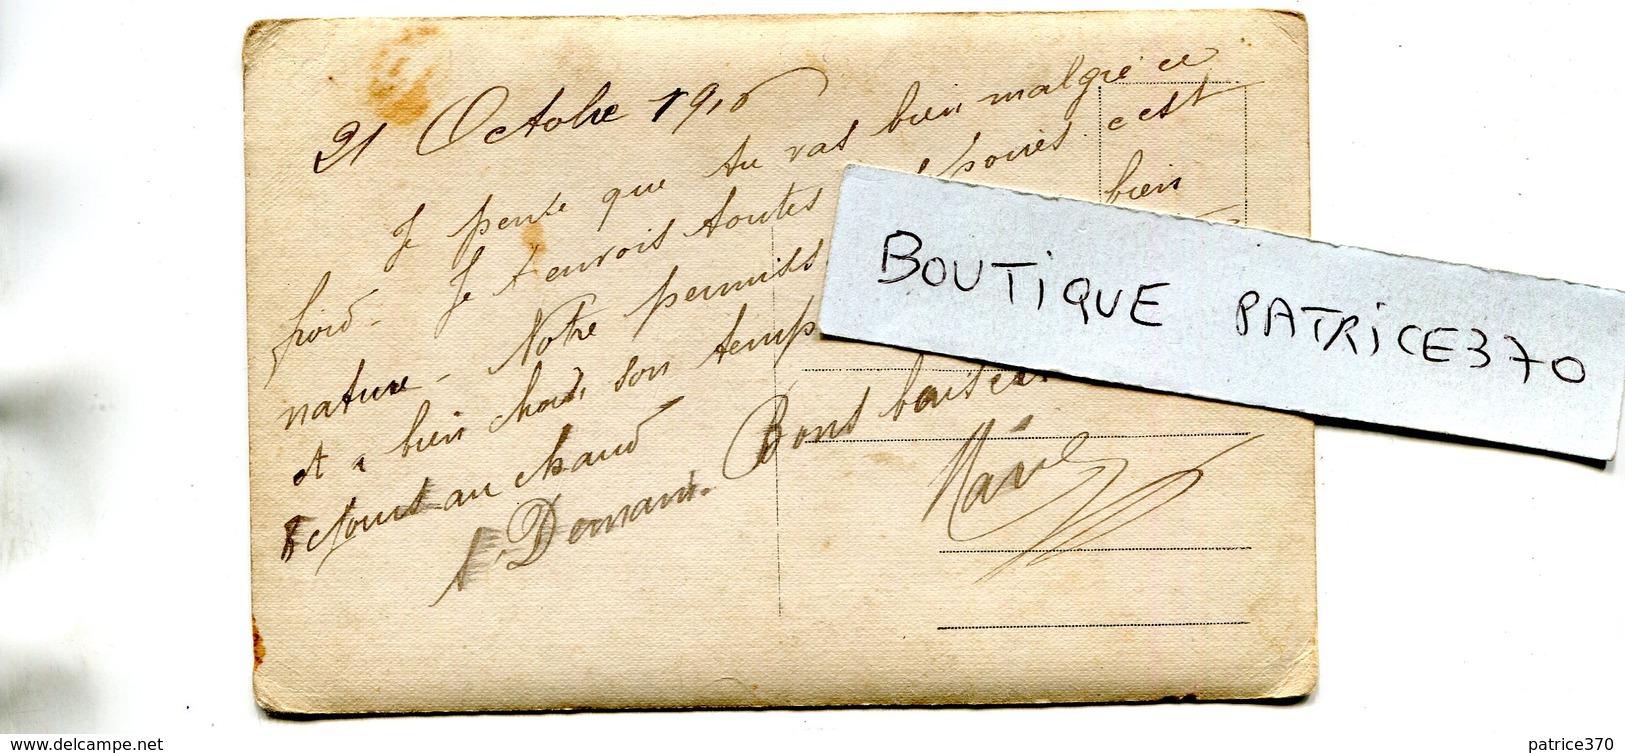 21 Octobre 19
Je pense que tu vas bien malgré ce
froid - Je t envois toutes poires c est
bien
nature - Notre permiss
et a bien choisi son temps
retour au chaud
A Demain. Bons baisers
BOUTiQUE PATRiCE370
www.delcampe.net
patrice370